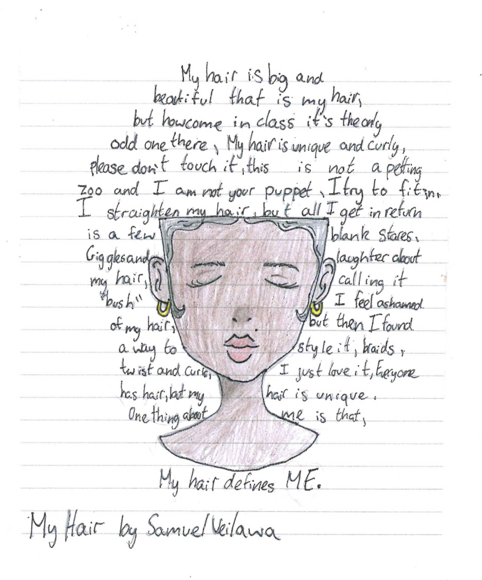 My hair is big and
beautiful that is my hair,
but howcome in class it's the only
odd one there, My hair is unique and curly,
Please don't touch it, this is not a petting
zoo and I am not your puppet, I try to fit in.
I straighten my hair, but all I get in return
is a few blank stares.
Giggles and laughter about
my hair, calling it
"bush" I feel ashamed
of my hair, but then I found
a way to style it, braids,
twist and curls, I just love it, Everyone
has hair, but my hair is unique.
One thing about me is that,
My hair defines ME.
My Hair by Samuel Veilawa